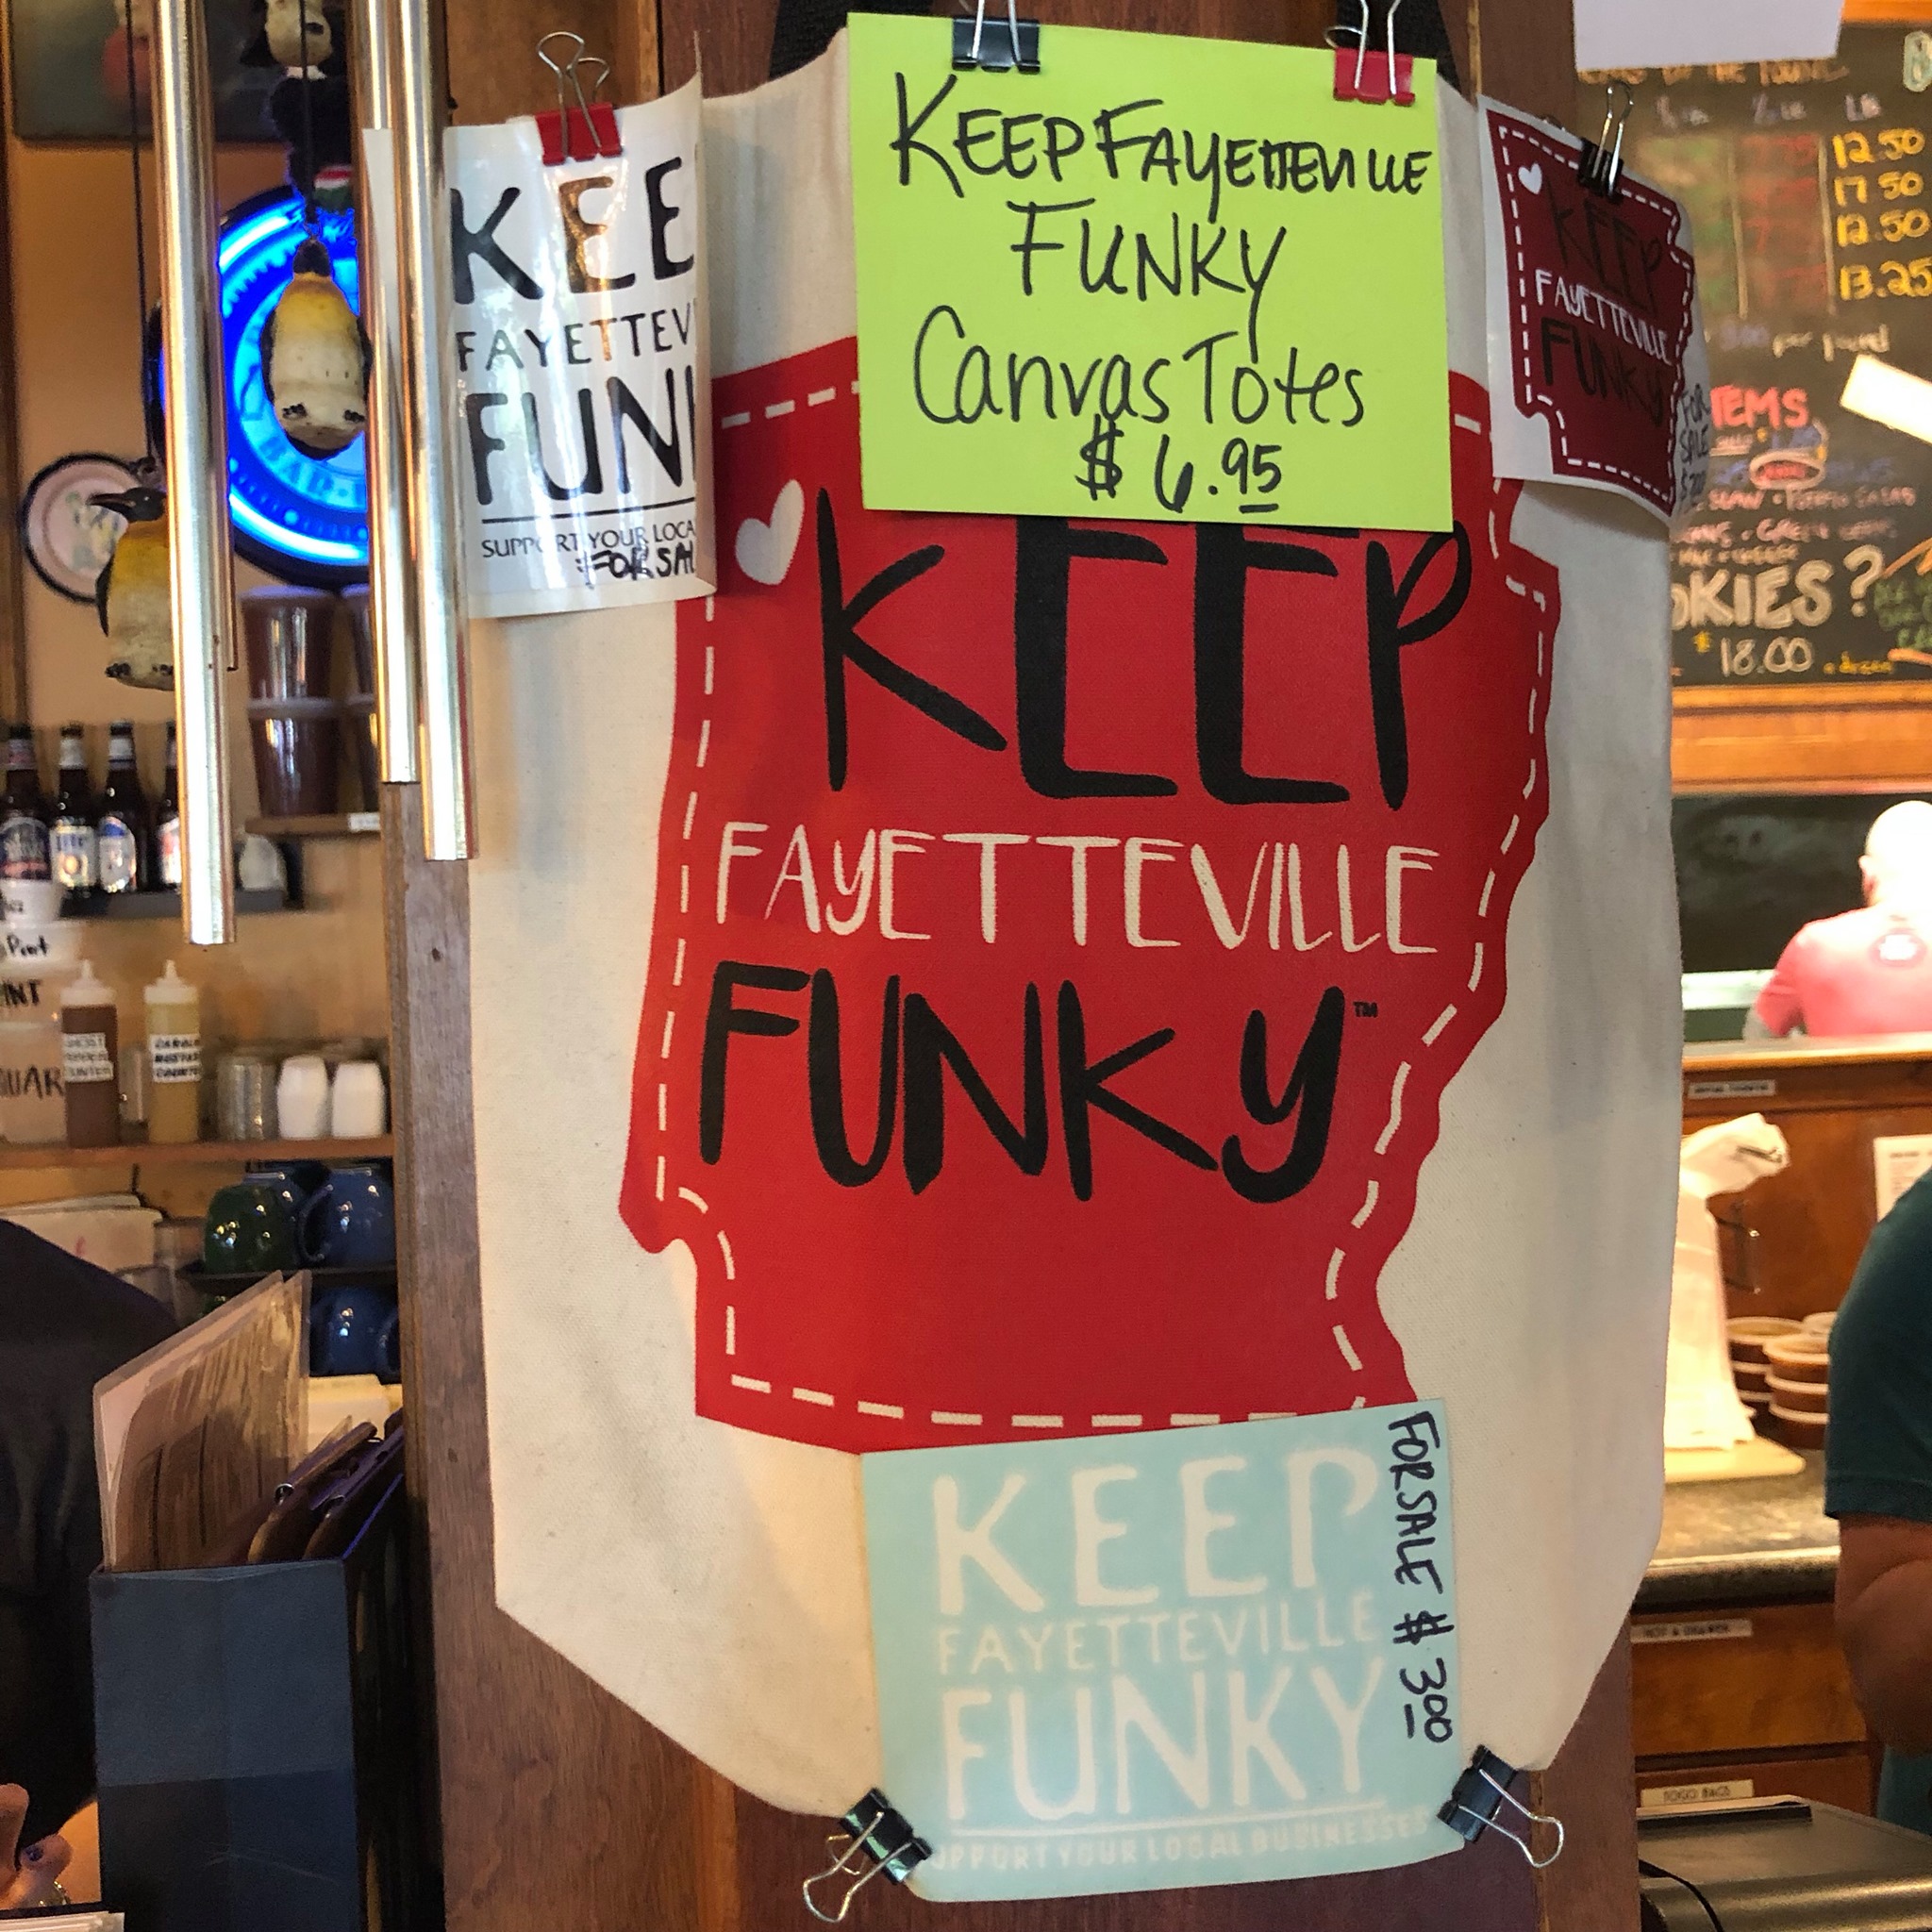 KEEP FAYETTEVILLE
FUNKY
Canvas Totes
$ 6.95
KEE
FAYETTEV
FUN
SUPPORT YOUR LOCA
FOR SAL
KEEP
FAYETTEVILLE
FUNKY
FOR
SALE
KEEP
FAYETTEVILLE
FUNKY™
KEEP
FAYETTEVILLE
FUNKY
UPPORT YOUR LOCAL BUSINESSES
FOR SALE $ 3.00
12.50
17.50
12.50
13.25
per pound
TEMS
OKIES?
$18.00
BAR
Lite
Pint
INT
QUAR
TOGO BAGS